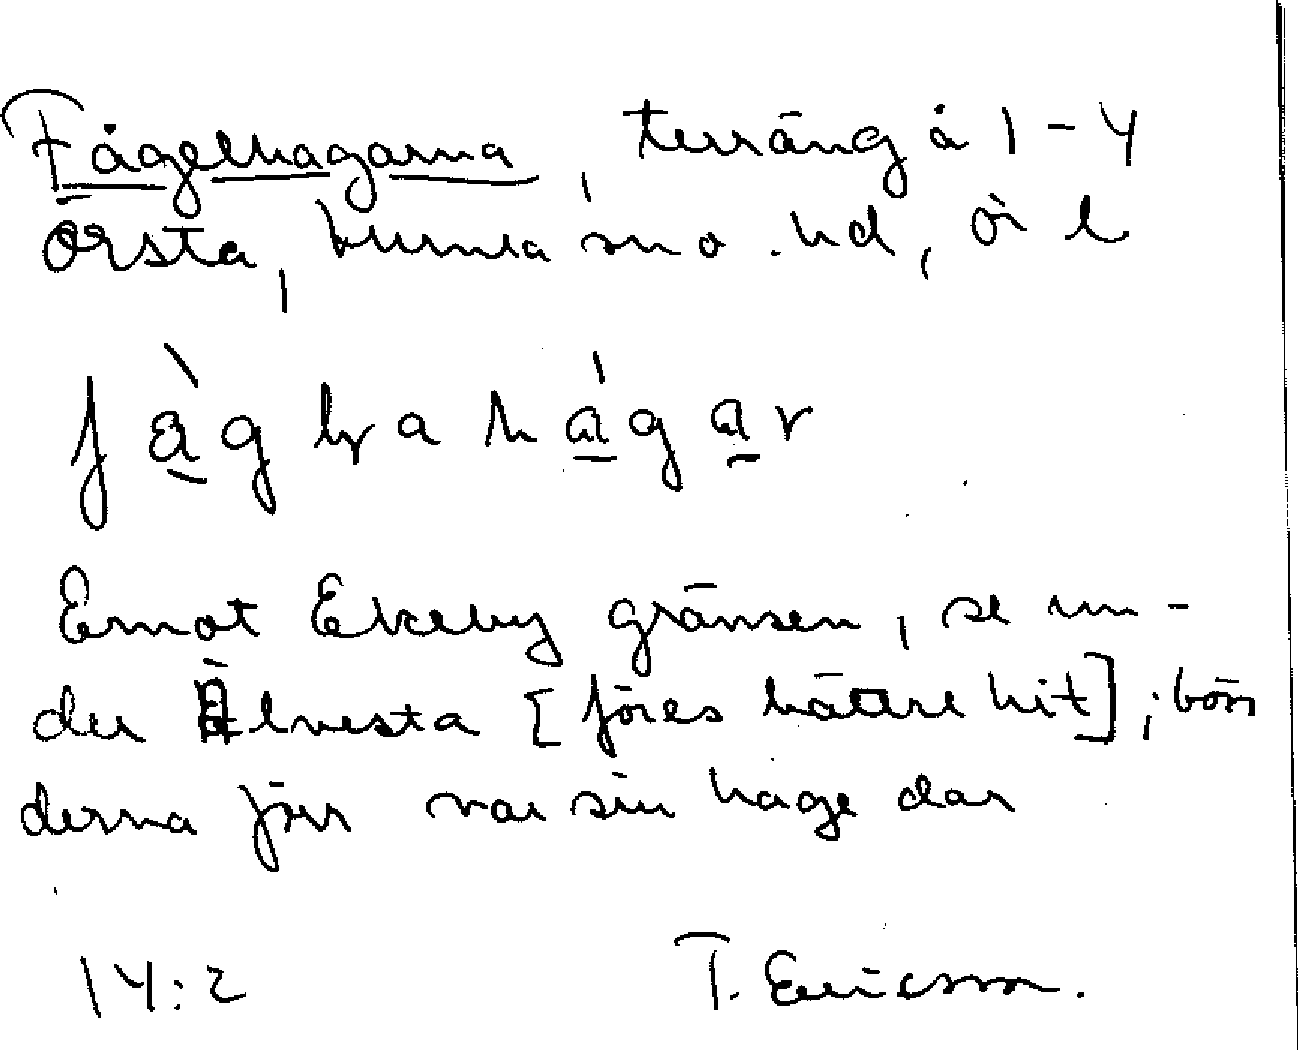 Fågelhagarna, terräng å 1-4
Örsta, Kumla sn o. hd, Ör l
fàgḷrahágar
Emot Ekeby gränsen, se un-
der Älvesta [föres bättre hit]; bön
derna förr var sin hage där
14:2 T. Ericsson.